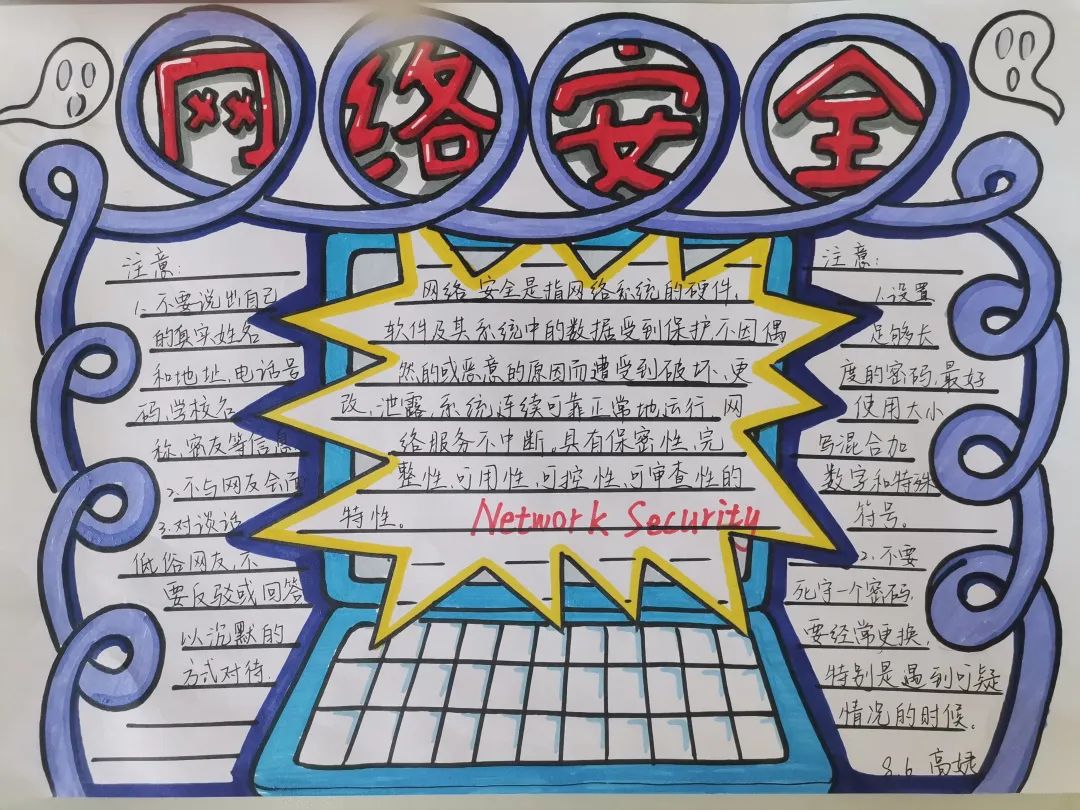 网络安全
注意:
1.不要说出自己
的真实姓名
和地址、电话号
码,学校名
称,密友等信息
2.不与网友会面
3.对谈话
低俗网友,不
要反驳或回答
以沉默的
方式对待.
网络安全是指网络系统的硬件、
软件及其系统中的数据受到保护,不因偶
然的或恶意的原因而遭受到破坏、更
改、泄露,系统连续可靠正常地运行,网
络服务不中断。具有保密性、完
整性、可用性、可控性、可审查性的
特性。
Network Security
注意:
1.设置
足够长
度的密码,最好
使用大小
写混合加
数字和特殊
符号。
2.不要
死守一个密码,
要经常更换,
特别是遇到可疑
情况的时候。
8.6 高